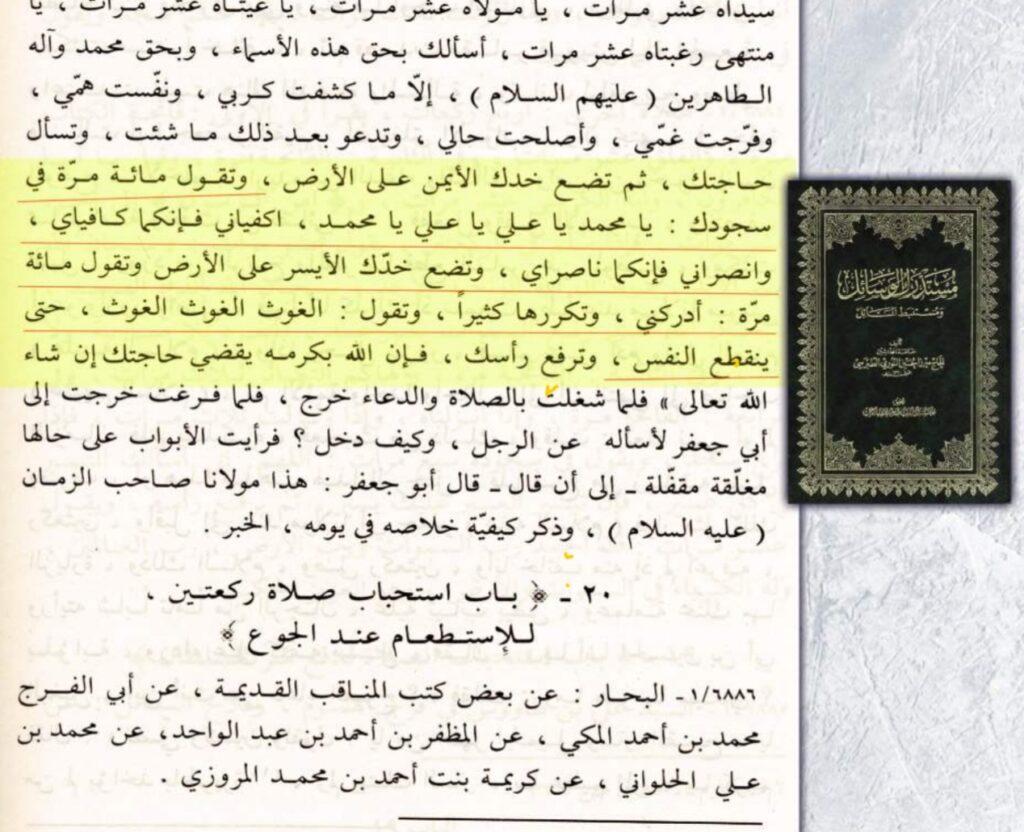 سيداه عشر مرات ، يا مولاه عشر مرات ، يا غيتاه عشر مرات ، يا
منتهى رغبتاه عشر مرات ، أسألك بحق هذه الأسماء ، وبحق محمد وآله
الطاهرين ( عليهم السلام ) ، إلّا ما كشفت كربي ، ونفّست همّي ،
وفرّجت غمّي ، وأصلحت حالي ، وتدعو بعد ذلك ما شئت ، وتسأل
حاجتك ، ثم تضع خدك الأيمن على الأرض ، وتقول مائة مرّة في
سجودك : يا محمد يا علي يا علي يا محمد ، اكفياني فإنكما كافياي ،
وانصراني فإنكما ناصراي ، وتضع خدّك الأيسر على الأرض وتقول مائة
مرّة : أدركني ، وتكررها كثيراً ، وتقول : الغوث الغوث الغوث ، حتى
ينقطع النفس ، وترفع رأسك ، فإن الله بكرمه يقضي حاجتك إن شاء
الله تعالى » فلما شغلت بالصلاة والدعاء خرج ، فلما فرغت خرجت إلى
أبي جعفر لأسأله عن الرجل ، وكيف دخل ؟ فرأيت الأبواب على حالها
مغلّقة مقفّلة ـ إلى أن قال ـ قال أبو جعفر : هذا مولانا صاحب الزمان
( عليه السلام ) ، وذكر كيفيّة خلاصه في يومه ، الخبر .
٢٠ ـ ﴿ باب استحباب صلاة ركعتين ،
للإستطعام عند الجوع ﴾
١/٦٨٨٦ـ البحار : عن بعض كتب المناقب القديمة ، عن أبي الفرج
محمد بن أحمد المكي ، عن المظفر بن أحمد بن عبد الواحد، عن محمد بن
علي الحلواني ، عن كريمة بنت أحمد بن محمد المروزي .
مستدرك الوسائل
ومستنبط المسائل